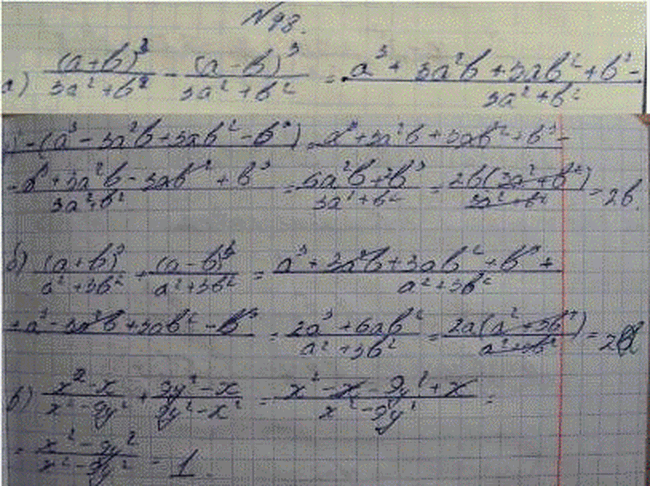 №98.
а) (a+b)³/(3a²+b²) - (a-b)³/(3a²+b²) = a³ + 3a²b + 3ab² + b³ - /(3a²+b²)
-(a³ - 3a²b + 3ab² - b³) = a³ + 3a²b + 3ab² + b³ -
- a³ + 3a²b - 3ab² + b³/(3a²+b²) = 6a²b + 2b³/(3a²+b²) = 2b(3a²+b²)/(3a²+b²) = 2b.
б) (a+b)³/(a²+3b²) + (a-b)³/(a²+3b²) = a³ + 3a²b + 3ab² + b³ + /(a²+3b²)
+ a³ - 3a²b + 3ab² - b³ = 2a³ + 6ab²/(a²+3b²) = 2a(a²+3b²)/(a²+3b²) = 2a
в) x²-x/(x²-9y²) + 9y²-x/(9y²-x²) = x²-x-9y²+x/(x²-9y²) =
= x²-9y²/(x²-9y²) = 1.